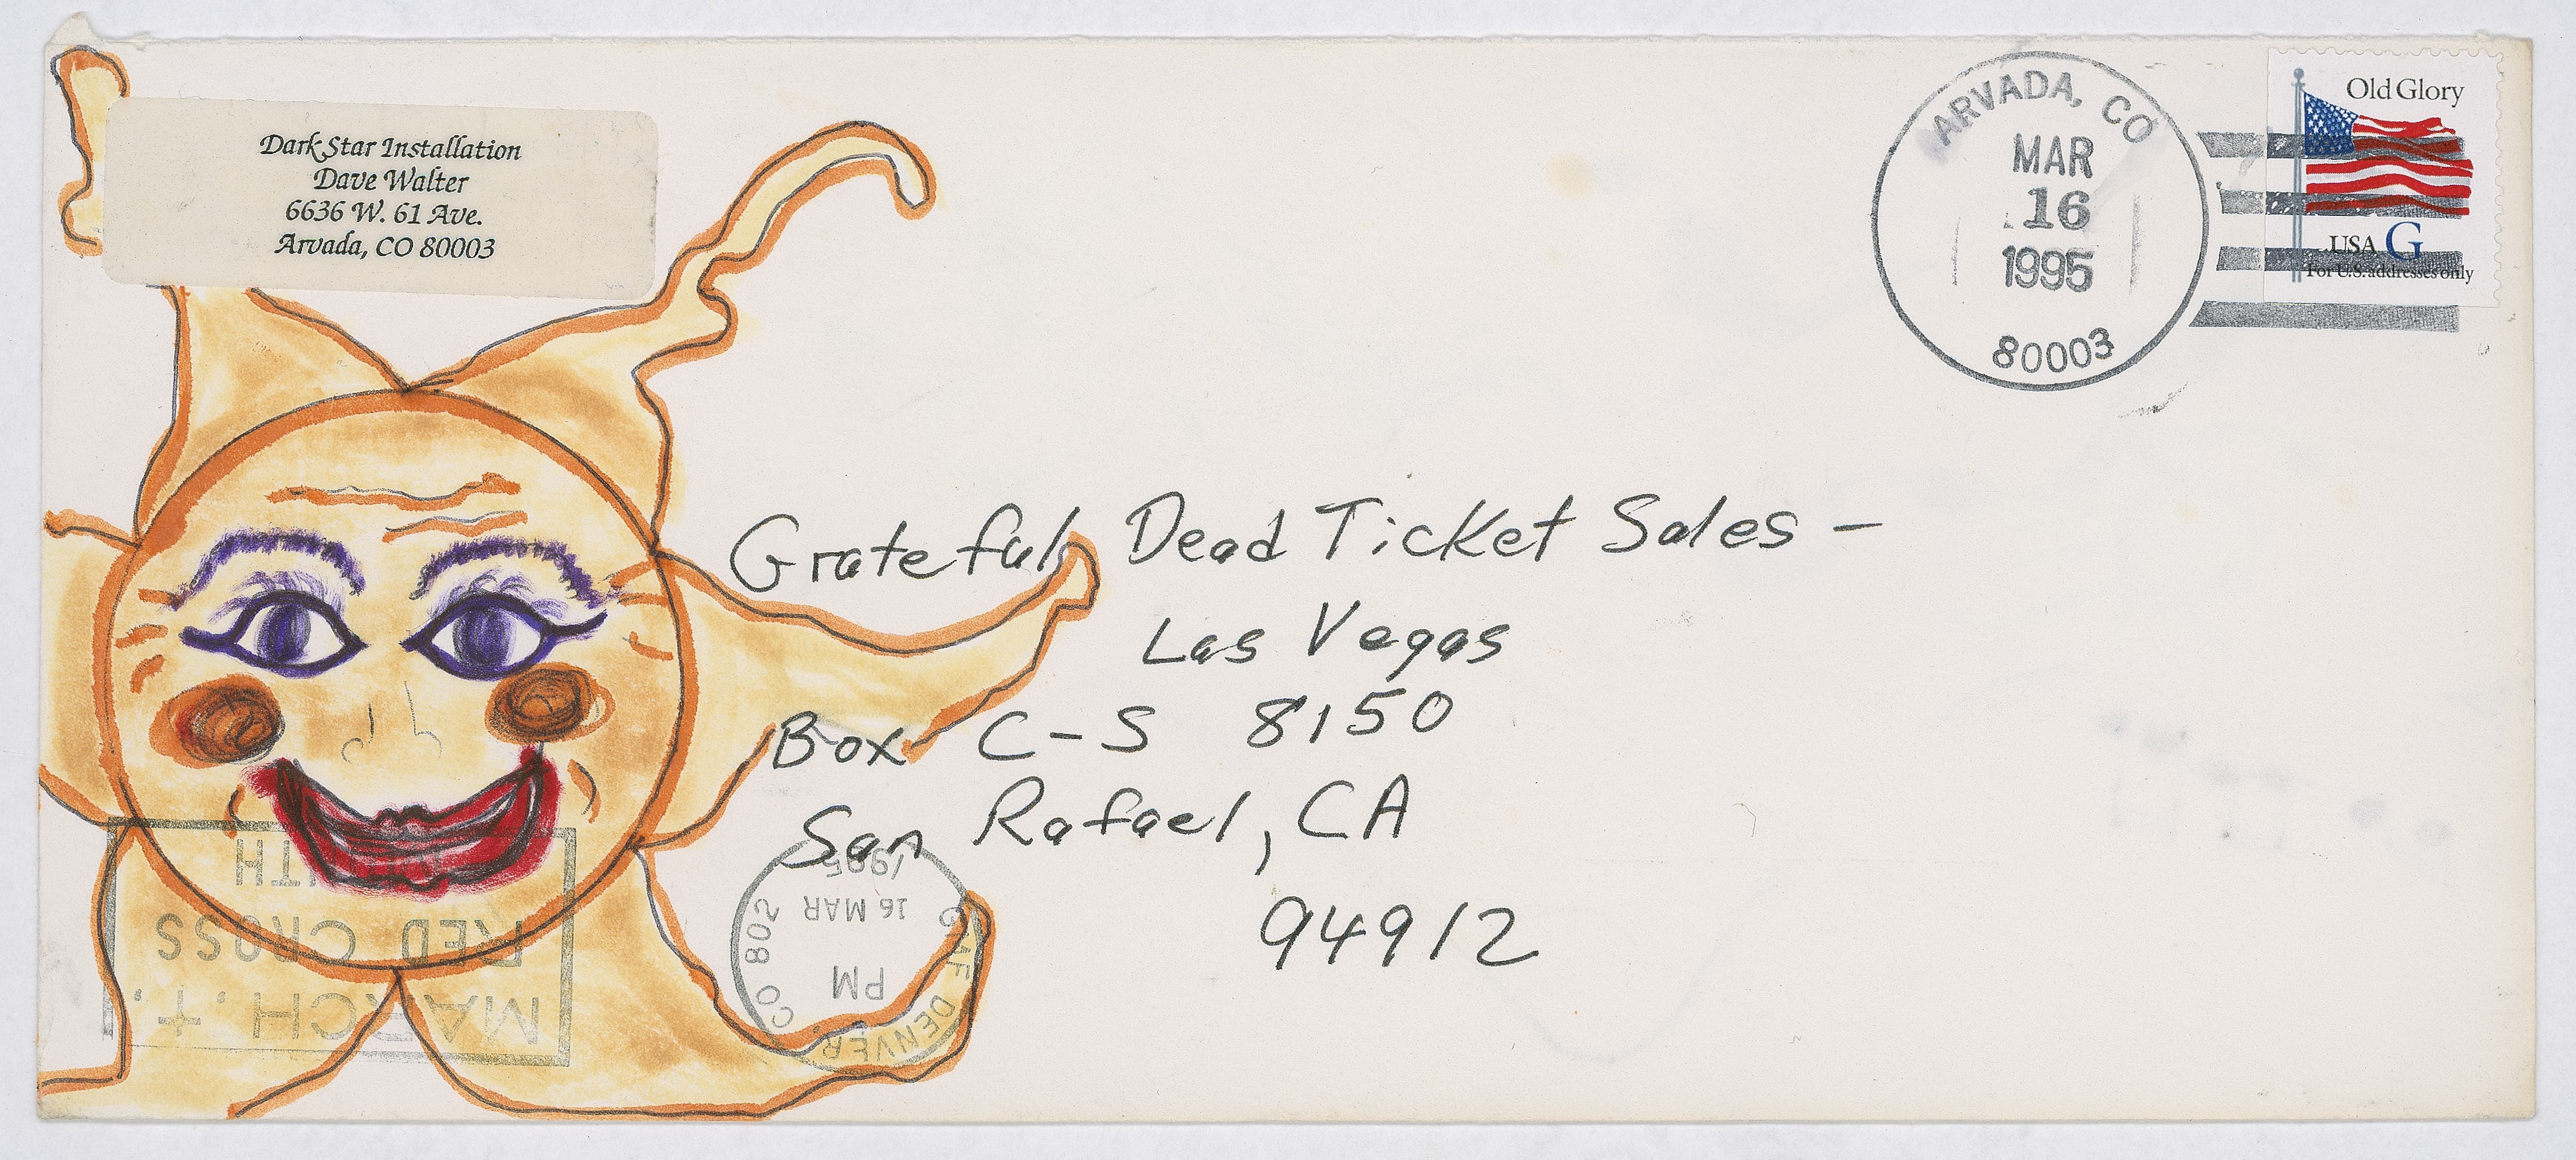 Dark Star Installation
Dave Walter
6636 W. 61 Ave.
Arvada, CO 80003
ARVADA, CO
MAR
16
1995
80003
Old Glory
USA G
For U.S. addresses only
Grateful Dead Ticket Sales –
Las Vegas
Box C-S 8150
San Rafael, CA
94912
MARCH.+.
RED CROSS
GMF DENVER, CO 802
PM
16 MAR
1995